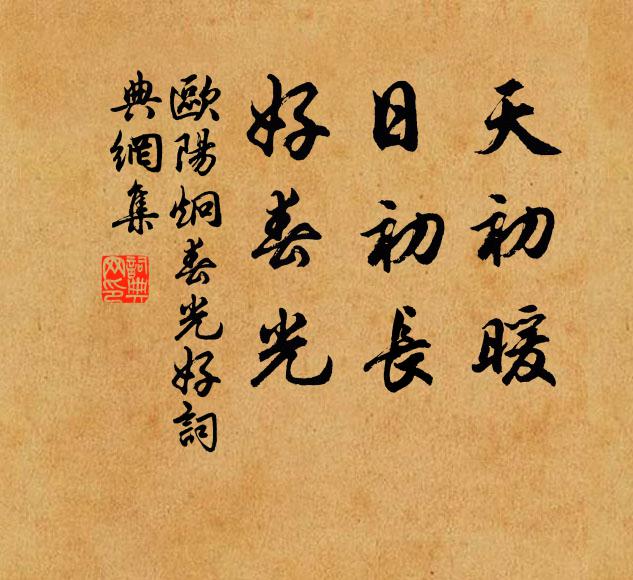 天初暖
日初長
好春光
歐陽炯春光好詞
典網集
詞典網印